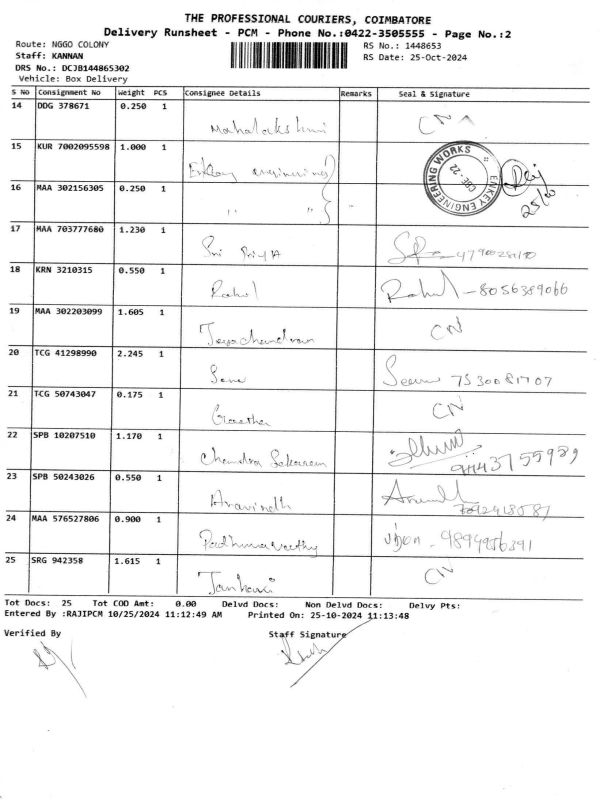 THE PROFESSIONAL COURIERS, COIMBATORE
Delivery Runsheet - PCM - Phone No.:0422-3505555 - Page No.:2
Route: NGGO COLONY RS No.: 1448653
Staff: KANNAN RS Date: 25-Oct-2024
DRS No.: DCJB144865302
Vehicle: Box Delivery
S No Consignment No Weight PCS Consignee Details Remarks Seal & Signature
14 DDG 378671 0.250 1
Mahalakshmi CN
15 KUR 7002095598 1.000 1
Enkay engineering
ENKEY ENGINEERING WORKS CBE-22
16 MAA 302156305 0.250 1
" " "
25/10
17 MAA 703777680 1.230 1
Sri Priya
18 KRN 3210315 0.550 1
Rahul Rahul - 8056389066
19 MAA 302203099 1.605 1
Jeyachandran CN
20 TCG 41298990 2.245 1
7530081707
21 TCG 50743047 0.175 1
Geetha CN
22 SPB 10207510 1.170 1
Chandra Sekaran
23 SPB 50243026 0.550 1
Aravindh
24 MAA 576527806 0.900 1
Padhmavathy - 9894956391
25 SRG 942358 1.615 1
Janhavi CN
Tot Docs: 25 Tot COD Amt: 0.00 Delvd Docs: Non Delvd Docs: Delvy Pts:
Entered By :RAJIPCM 10/25/2024 11:12:49 AM Printed On: 25-10-2024 11:13:48
Verified By Staff Signature